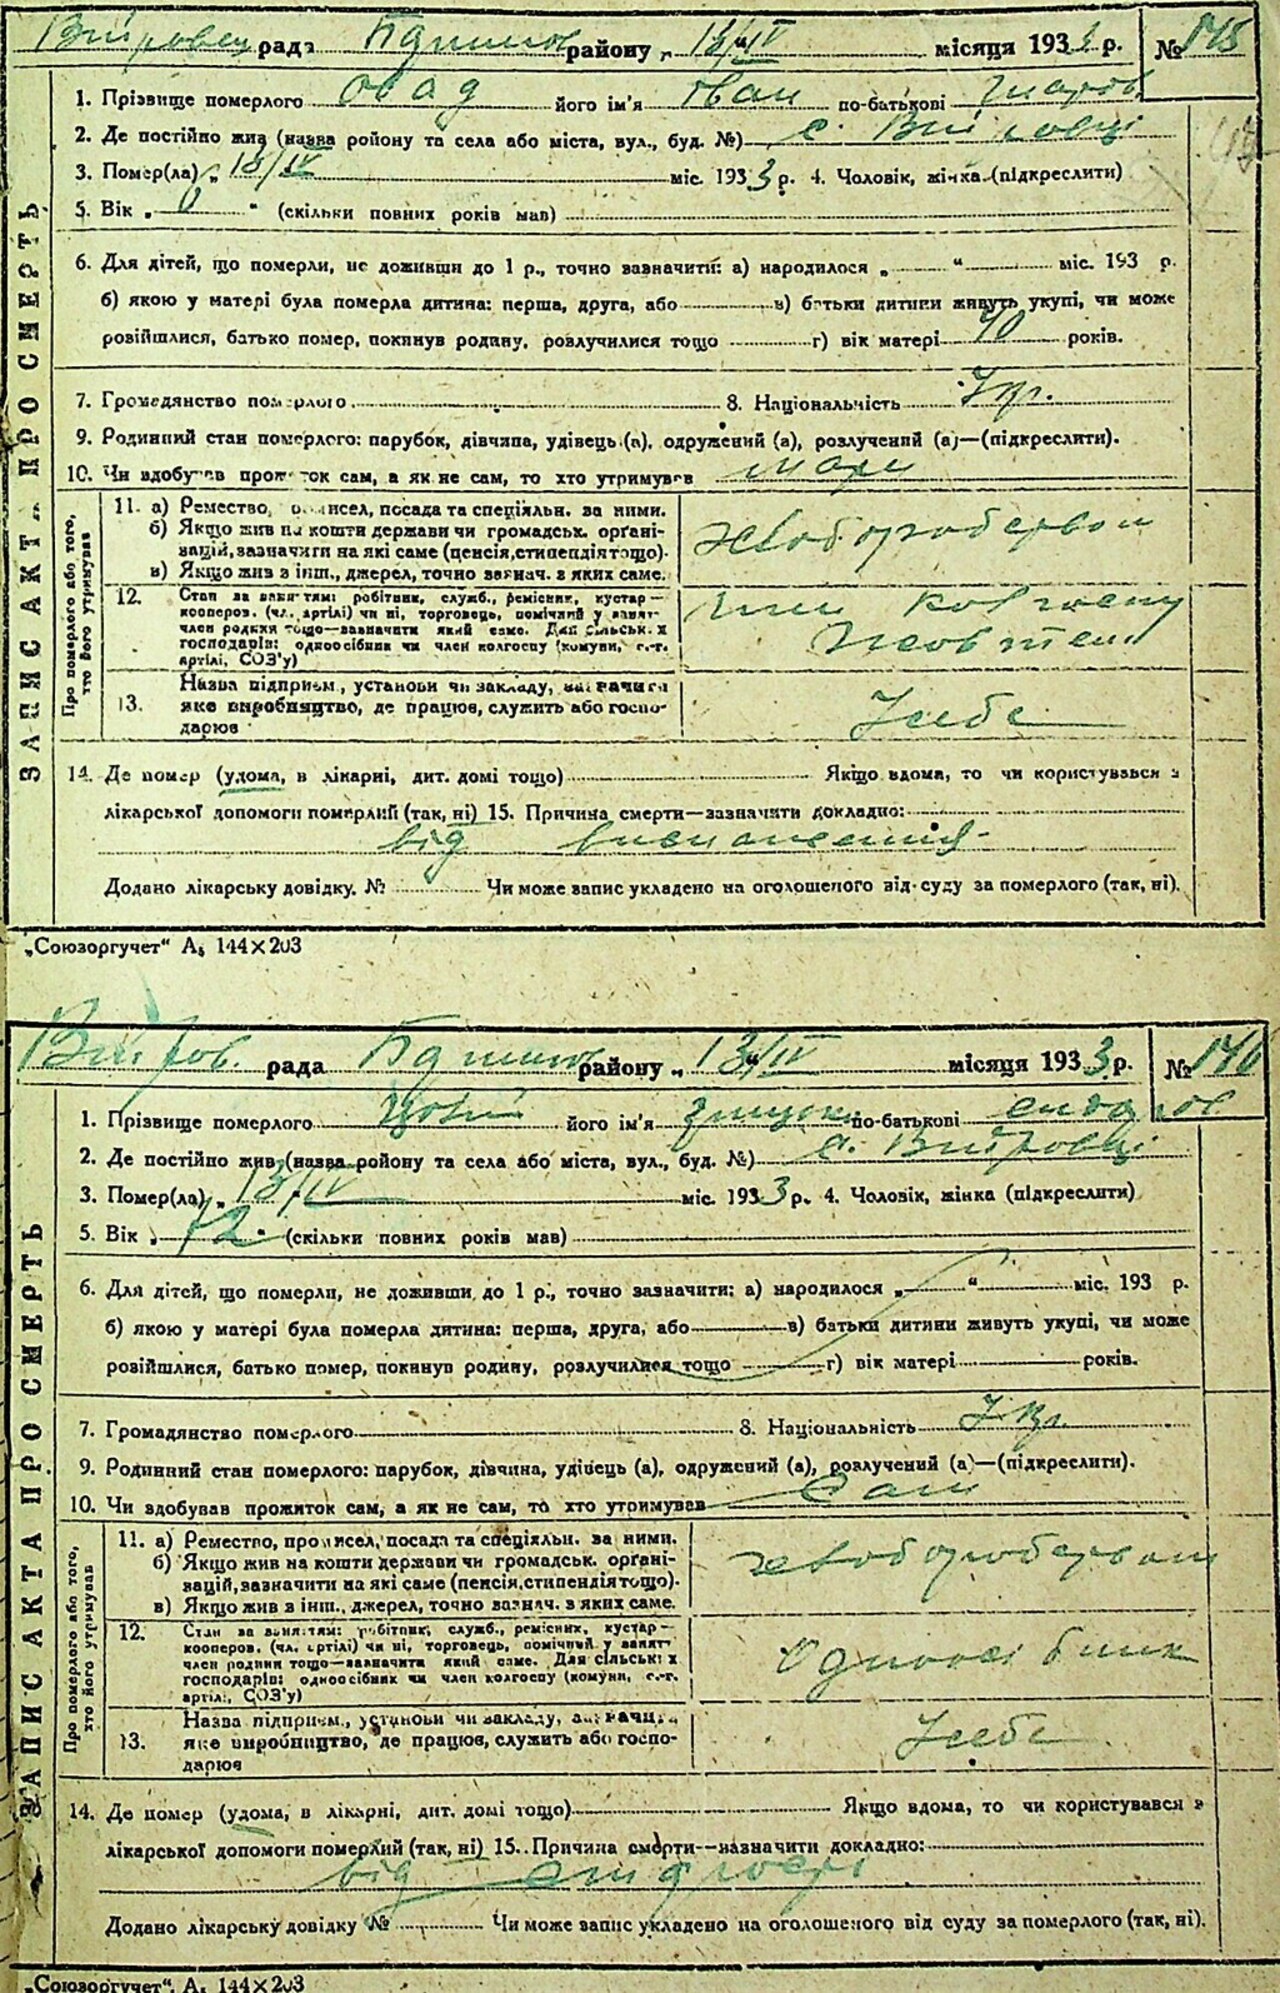 рада району „ 13/IV місяця 193 3 р. № 145
1. Прізвище померлого його ім'я Іван по-батькові
2. Де постійно жив (назва ройону та села або міста, вул., буд. №) с. Війтовці
3. Помер(ла) „ 13/IV міс. 193 3 р. 4. Чоловік, жінка (підкреслити)
5. Вік „ 0 “ (скільки повних років мав)
6. Для дітей, що померли, не доживши до 1 р., точно зазначити: а) народилося „ “ міс. 193 р.
б) якою у матері була померла дитина: перша, друга, або в) батьки дитини живуть укупі, чи може
розійшлися, батько помер, покинув родину, розлучилися тощо г) вік матері 40 років.
7. Громадянство померлого 8. Національність Укр.
9. Родинний стан померлого: парубок, дівчина, удівець (а), одружений (а), розлучений (а)—(підкреслити).
10. Чи здобував прожиток сам, а як не сам, то хто утримував
ЗАПИС АКТА ПРО СМЕРТЬ
Про померлого або того, хто його утримував
11. а) Ремество, промисел, посада та спеціяльн. за ними.
б) Якщо жив на кошти держави чи громадськ. орґані-
зацій, зазначити на які саме (пенсія, стипендія тощо).
в) Якщо жив з інш., джерел, точно зазнач. з яких саме.
хлібороберном
12. Стан за заняттям: робітник, служб., ремісник, кустар—
кооперов. (чл. артілі) чи ні, торговець, помічний у занят-
член родини тощо—зазначити який саме. Для сільськ. х
господарів: одноосібник чи член колгоспу (комуни, с.-г.
артілі, СОЗ'у)
член колгоспу
13. Назва підприєм., установи чи закладу, зазначити
яке виробництво, де працює, служить або госпо-
дарює
У себе
14. Де помер (удома, в лікарні, дит. домі тощо) Якщо вдома, то чи користувався з
лікарської допомоги померлий (так, ні) 15. Причина смерти—зазначити докладно:
від виснаження
Додано лікарську довідку. № Чи може запис укладено на оголошеного від суду за померлого (так, ні).
„Союзоргучет“ А₅ 144×203
рада району „ 13/IV місяця 193 3 р. № 146
1. Прізвище померлого його ім'я по-батькові
2. Де постійно жив (назва ройону та села або міста, вул., буд. №) с. Війтовці
3. Помер(ла) „ 13/IV міс. 193 3 р. 4. Чоловік, жінка (підкреслити)
5. Вік „ 72 “ (скільки повних років мав)
6. Для дітей, що померли, не доживши до 1 р., точно зазначити: а) народилося „ “ міс. 193 р.
б) якою у матері була померла дитина: перша, друга, або в) батьки дитини живуть укупі, чи може
розійшлися, батько помер, покинув родину, розлучилися тощо г) вік матері років.
7. Громадянство померлого 8. Національність Укр.
9. Родинний стан померлого: парубок, дівчина, удівець (а), одружений (а), розлучений (а)—(підкреслити).
10. Чи здобував прожиток сам, а як не сам, то хто утримував Сам
ЗАПИС АКТА ПРО СМЕРТЬ
Про померлого або того, хто його утримував
11. а) Ремество, промисел, посада та спеціяльн. за ними.
б) Якщо жив на кошти держави чи громадськ. орґані-
зацій, зазначити на які саме (пенсія, стипендія тощо).
в) Якщо жив з інш., джерел, точно зазнач. з яких саме.
хлібороберном
12. Стан за заняттям: робітник, служб., ремісник, кустар—
кооперов. (чл. артілі) чи ні, торговець, помічний у занят-
член родини тощо—зазначити який саме. Для сільськ. х
господарів: одноосібник чи член колгоспу (комуни, с.-г.
артілі, СОЗ'у)
Одноосібник
13. Назва підприєм., установи чи закладу, зазначити
яке виробництво, де працює, служить або госпо-
дарює
У себе
14. Де помер (удома, в лікарні, дит. домі тощо) Якщо вдома, то чи користувався з
лікарської допомоги померлий (так, ні) 15. Причина смерти—зазначити докладно:
від старості
Додано лікарську довідку № Чи може запис укладено на оголошеного від суду за померлого (так, ні).
„Союзоргучет“. А₅ 144×203